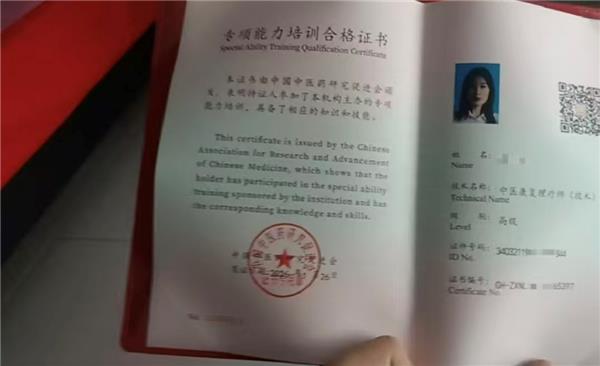 专项能力培训合格证书
Special Ability Training Qualification Certificate
本证书由中国中医药研究促进会颁
发,表明持证人参加了本机构主办的专项
能力培训,具备了相应的知识和技能。
This certificate is issued by the Chinese
Association for Research and Advancement
of Chinese Medicine, which shows that the
holder has participated in the special ability
training sponsored by the institution and has
the corresponding knowledge and skills.
姓 名:
Name
技术名称: 中医康复理疗师(技术)
Technical Name
级别: 高级
Level
证件号码: 34032119 944
ID No.
证书编号: GH-ZXNL 65397
Certificate No.
No.